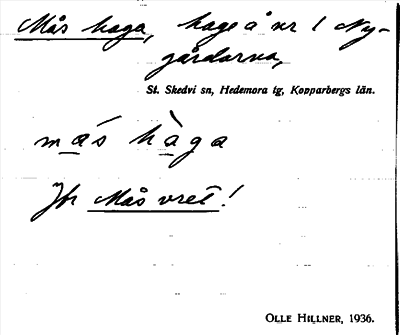 Mås haga, hage å nr 1 Ny-
gårdarna,
St. Skedvi sn, Hedemora tg, Kopparbergs län.
ma̲s hà̲ga
Jfr Mås vret!
OLLE HILLNER, 1936.